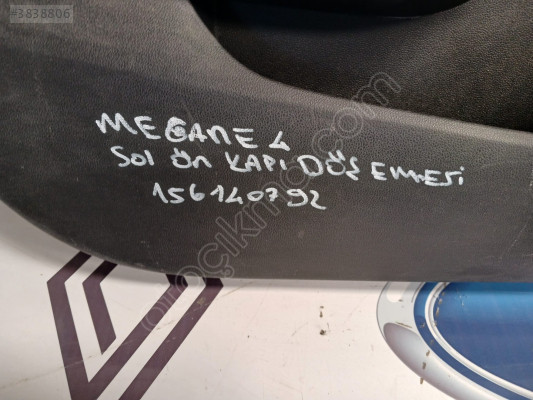 #3838806
MEGANE 4
SOL ÖN KAPI DÖŞEMESİ
156140792